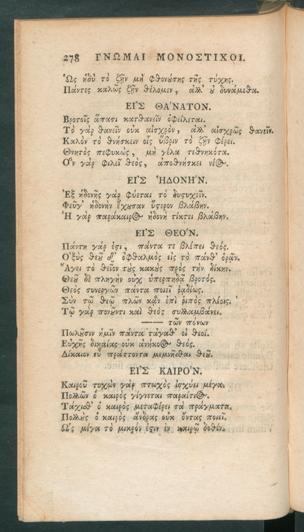 278 ΓΝΩΜΑΙ ΜΟΝΟΣΤΙΧΟΙ.
Ὡς ἡδὺ τὸ ζῆν μὴ φθονούσης τῆς τύχης.
Πάντες καλῶς ζῆν θέλομεν, ἀλλ' οὐ δυνάμεθα.
ΕΙ'Σ ΘΑ'ΝΑΤΟΝ.
Βροτοῖς ἅπασι κατθανεῖν ὀφείλεται.
Τὸ γὰρ θανεῖν οὐκ αἰσχρὸν, ἀλλ' αἰσχρῶς θανεῖν.
Καλὸν τὸ θνήσκειν οἷς ὕβριν τὸ ζῆν φέρει.
Θνητὸς πεφυκὼς, μὴ γέλα τεθνηκότα.
Ὃν γὰρ φιλεῖ θεὸς, ἀποθνήσκει νέος.
ΕΙ'Σ Ἡ'ΔΟΝΗ'Ν.
Ἐξ ἡδονῆς γὰρ φύεται τὸ δυστυχεῖν.
Φεῦγ' ἡδονὴν ἔχουσαν ὕστερον βλάβην.
Ἡ γὰρ παράκαιρος ἡδονὴ τίκτει βλάβην.
ΕΙ'Σ ΘΕΟ'Ν.
Πάντη γάρ ἐστι, πάντα τε βλέπει θεός.
Ὀξὺς θεῶν ὀφθαλμὸς εἰς τὸ πάνθ' ὁρᾶν.
Ἄγει τὸ θεῖον τοὺς κακοὺς πρὸς τὴν δίκην.
Θεοῦ δὲ πληγὴν οὐχ ὑπερπηδᾷ βροτός.
Θεὸς συνεργῶν πάντα ποιεῖ ῥᾳδίως.
Σὺν τῷ θεῷ πλῶν κᾂν ἐπὶ ῥιπὸς πλέοις.
Τῷ γὰρ πονοῦντι καὶ θεὸς συλλαμβάνει.
τῶν πόνων
Πωλοῦσιν ἡμῖν πάντα τἀγάθ' οἱ θεοί.
Εὐχῆς δικαίας οὐκ ἀνήκοος θεός.
Δίκαιον εὖ πράττοντα μεμνῆσθαι θεοῦ.
ΕΙ'Σ ΚΑΙΡΟ'Ν.
Καιροῦ τυχὼν γὰρ πτωχὸς ἰσχύει μέγα.
Πολλῶν ὁ καιρὸς γίγνεται παραίτιος.
Τάχισθ' ὁ καιρὸς μεταφέρει τὰ πράγματα.
Πολλοὺς ὁ καιρὸς ἄνδρας οὐκ ὄντας ποιεῖ.
Ὡς μέγα τὸ μικρόν ἐστιν ἐν καιρῷ δοθέν.